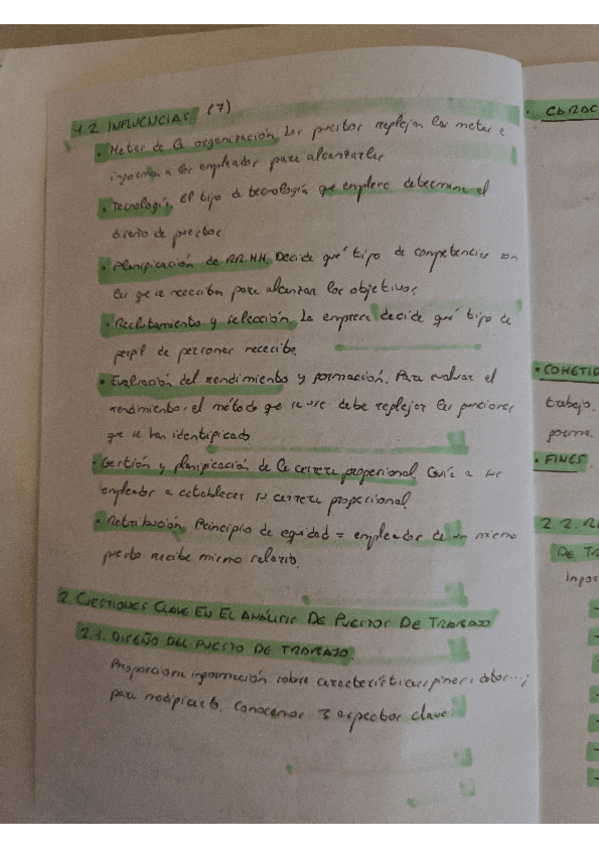 1.2 INFLUENCIAS (7)
• Metas de la organización. Los puestos reflejan las metas e
informa a los empleados para alcanzarlas
• Tecnología. El tipo de tecnología que emplees determina el
diseño de puestos
• Planificación de RR.HH. Decide qué tipo de competencias son
las que se necesitan para alcanzar los objetivos.
• Reclutamiento y selección. La empresa decide qué tipo de
perfil de personas necesita.
• Evaluación del rendimiento y formación. Para evaluar el
rendimiento, el método que se use debe reflejar las funciones
que se han identificado
• Gestión y planificación de la carrera profesional. Guía a sus
empleados a establecer su carrera profesional.
• Retribución. Principio de equidad = empleados de un mismo
puesto recibe mismo salario.
2. CUESTIONES CLAVE EN EL ANÁLISIS DE PUESTOS DE TRABAJO
2.1. DISEÑO DEL PUESTO DE TRABAJO.
Proporciona información sobre características, fines, datos...;
para modificarlo. Conocemos 3 aspectos clave:
• CARAC
• COMETID
trabajo.
• FINES.
2.2. R
DE TR
Impor